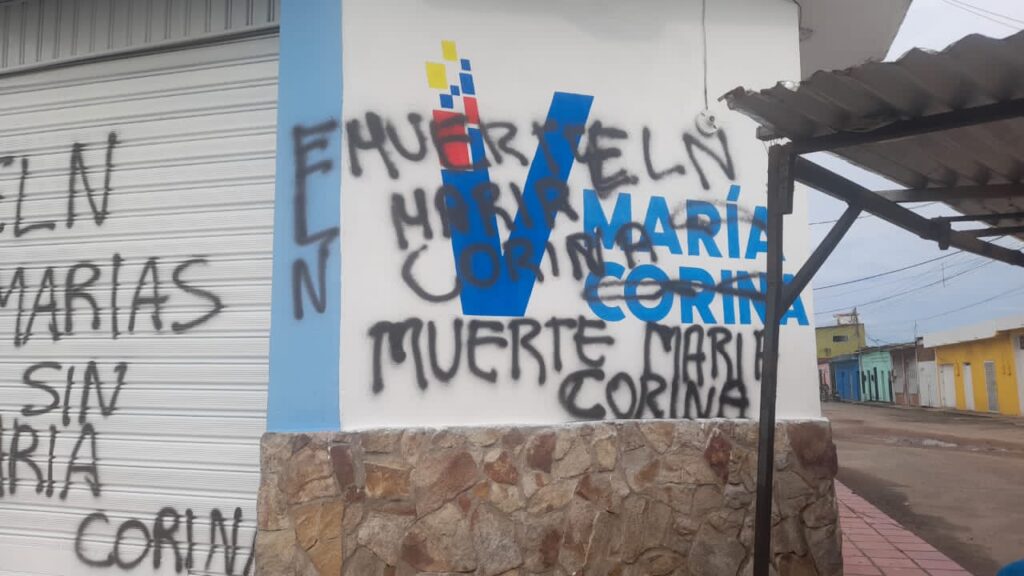 ELN
MARIAS
SIN
MARIA
CORINA
ELN
MUERTE ELN
MARIA
CORINA
MARÍA
CORINA
MUERTE MARIA
CORINA